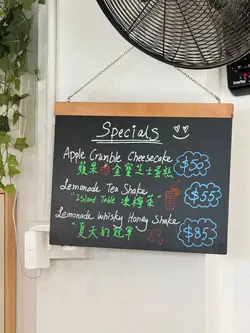 Specials
Apple Crumble Cheesecake $50
蘋果金寶芝士蛋糕
Lemonade Tea Shake $55
"Island Table 凍檸茶"
Lemonade Whisky Honey Shake $85
"夏天的冠軍"